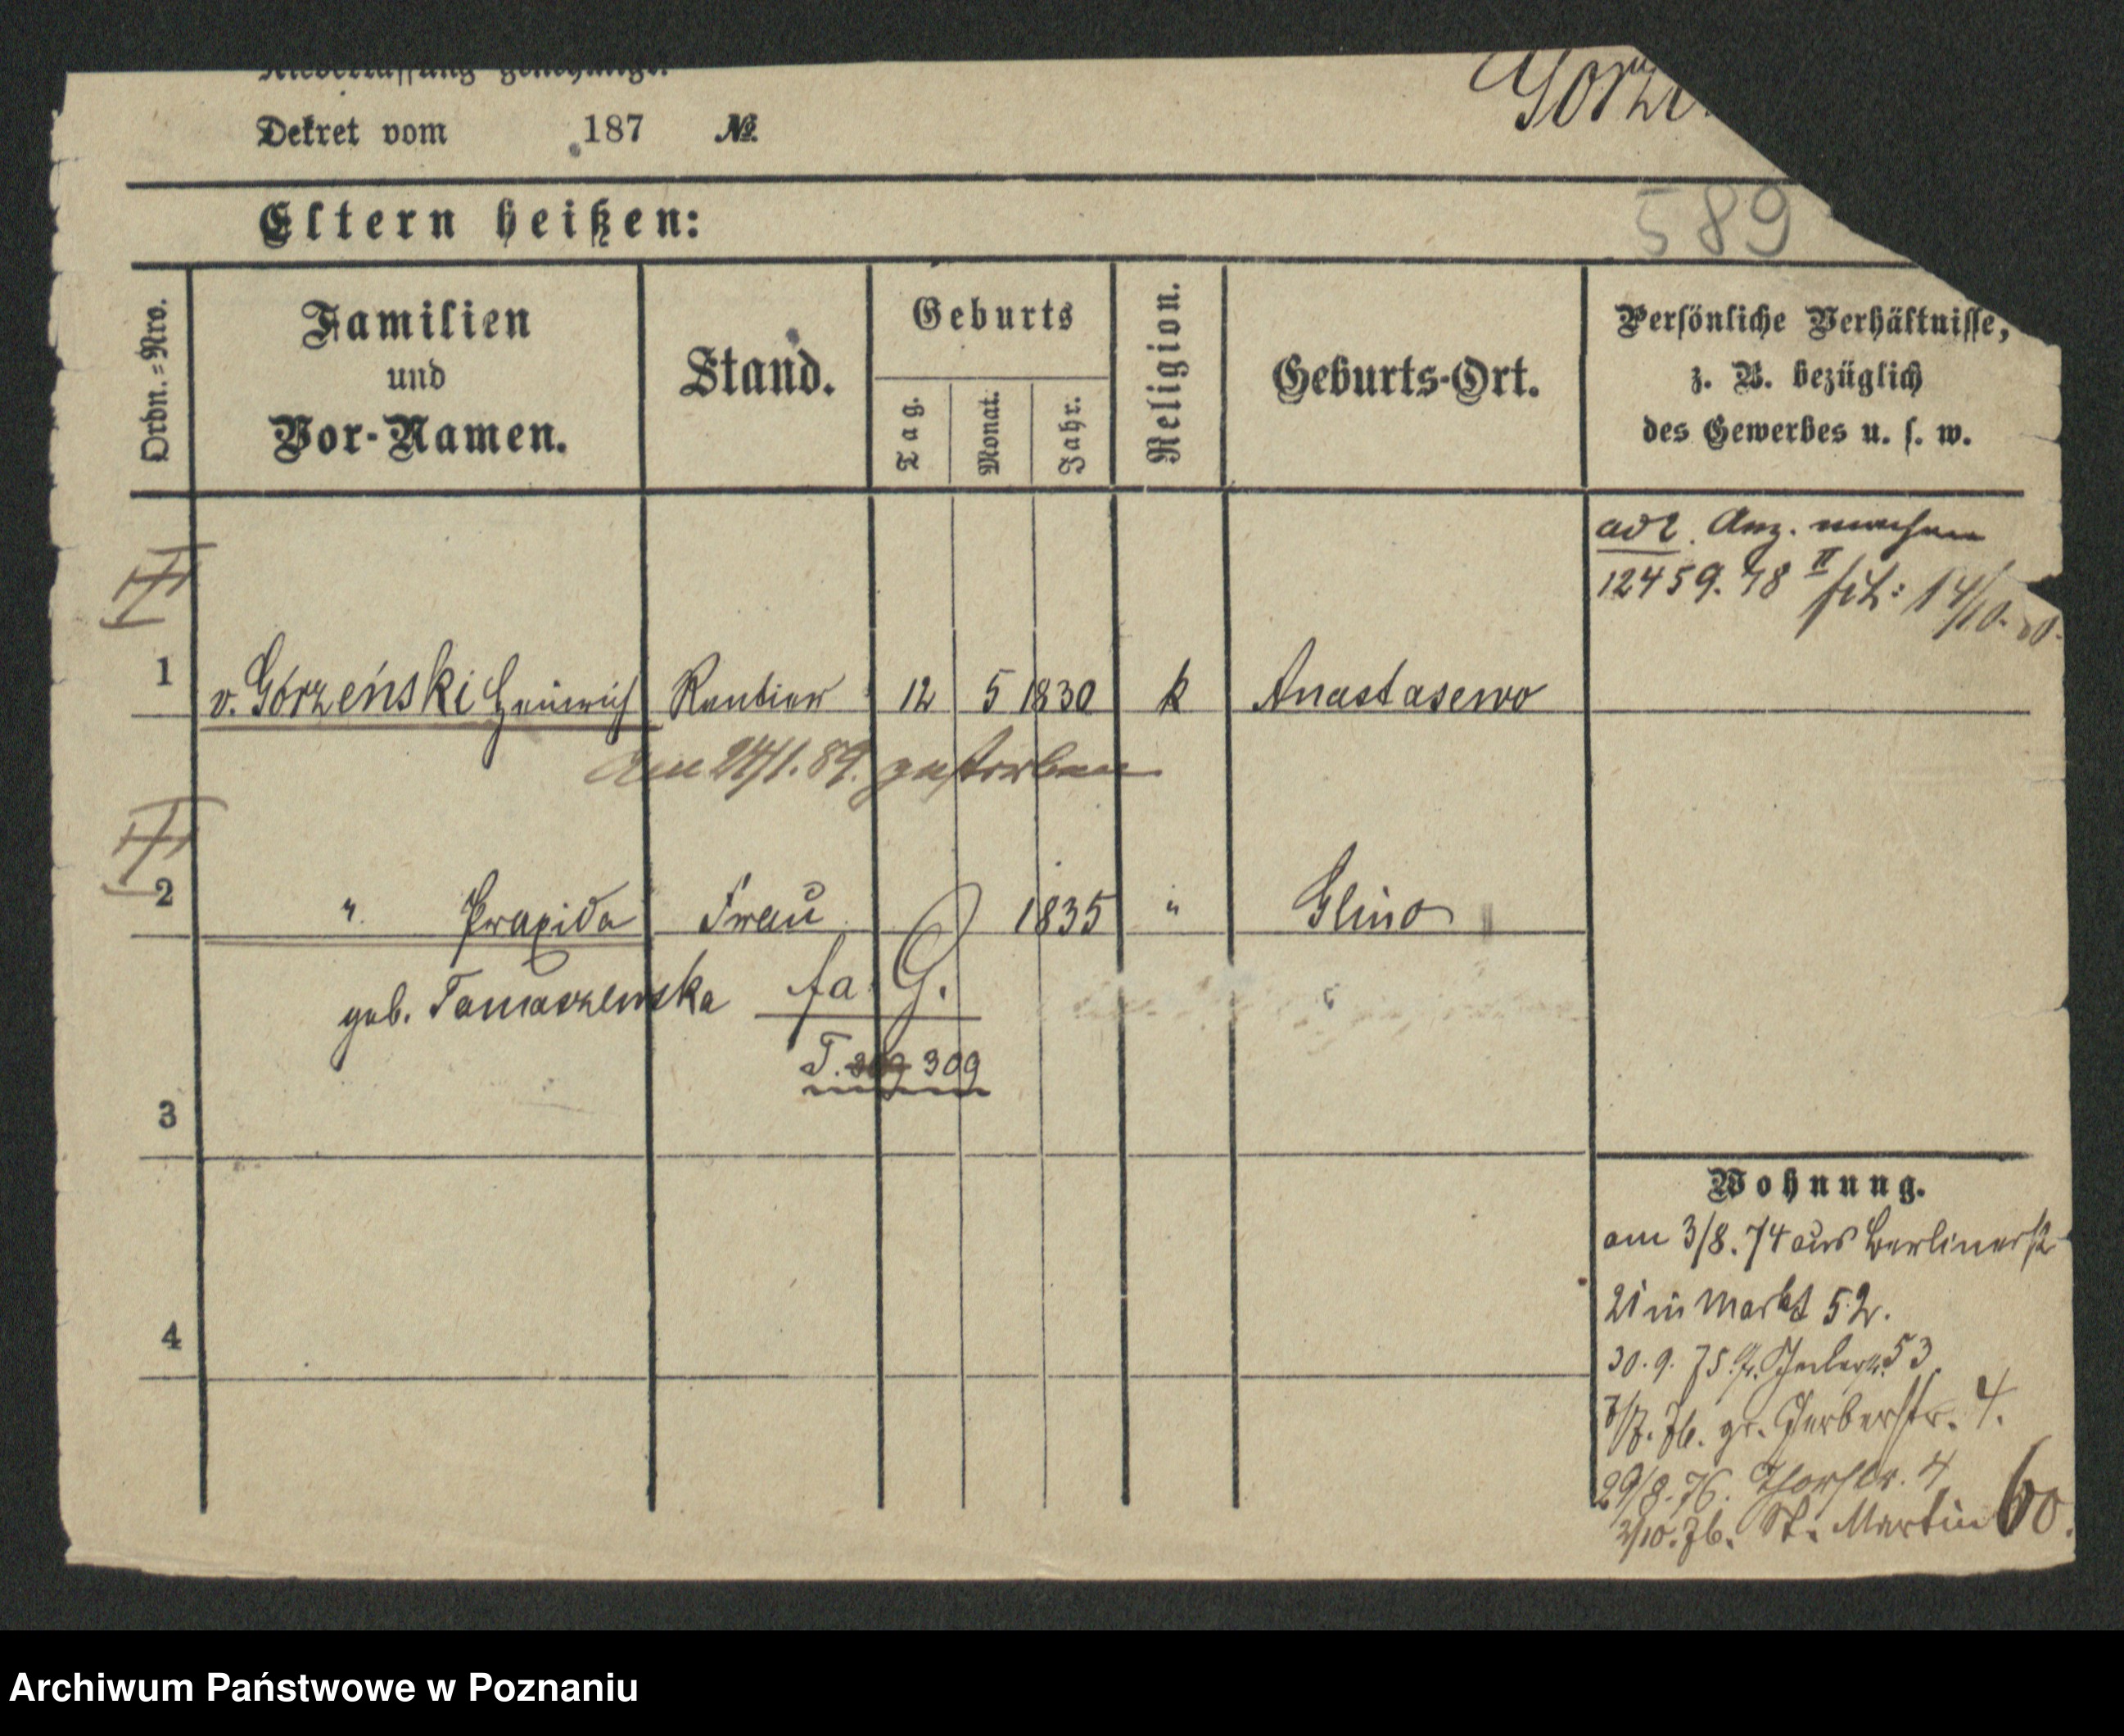 Niederlassung genehmigt.
Górze
Dekret vom 187 №
Eltern heißen:
589
Ordn.=Nro.
Familien
und
Vor-Namen.
Stand.
Geburts
Tag.
Monat.
Jahr.
Religion.
Geburts-Ort.
Persönliche Verhältnisse,
z. B. bezüglich
des Gewerbes u. s. w.
ad 2. Anz. machen
12459.78 II
14/10.
1 v. Górzeński Heinrich Rentier 12 5 1830 k Anastasewo
am 24/1.89. gestorben
2 " Praxida Frau 1835 " Glino
geb. Tomaszewska fa G.
T. 309
3
4
Wohnung.
am 3/8.74 aus Berlinerstr
21 in Markt 52.
30.9.75. Gr. Gerberstr. 53
7/7.76. gr. Gerberstr. 4.
29/8.76. Thorstr. 4
2/10.76. St. Martin 60.
Archiwum Państwowe w Poznaniu